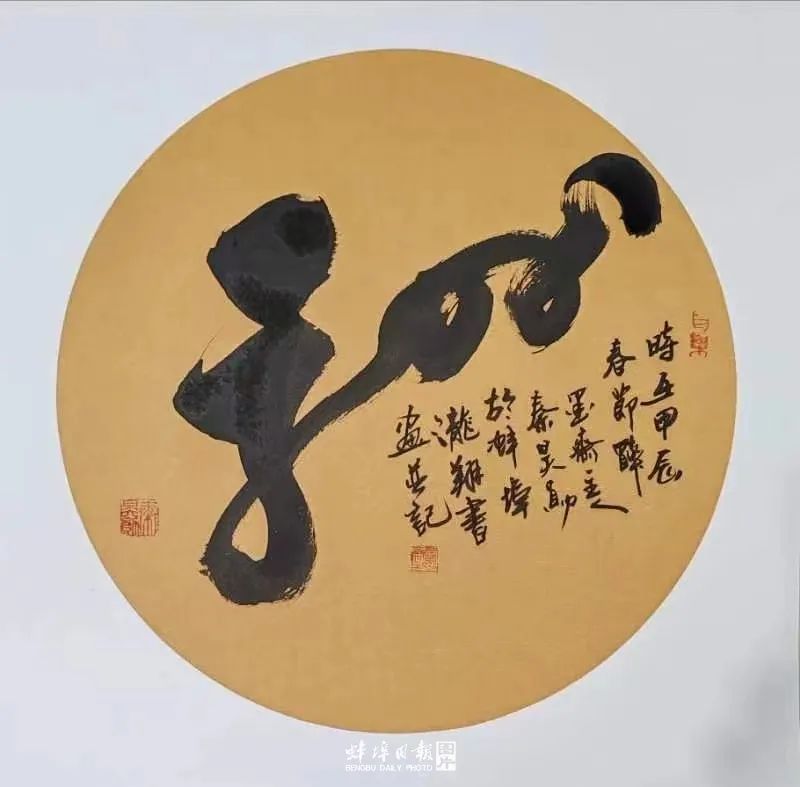 時在甲辰
春節醉
墨齋主人
秦昊
於蚌埠
瀧翔書
畫並記
蚌埠日報 图片
BENGBU DAILY PHOTO